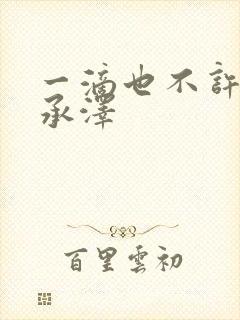 一滴也不許
承澤
百里雲初